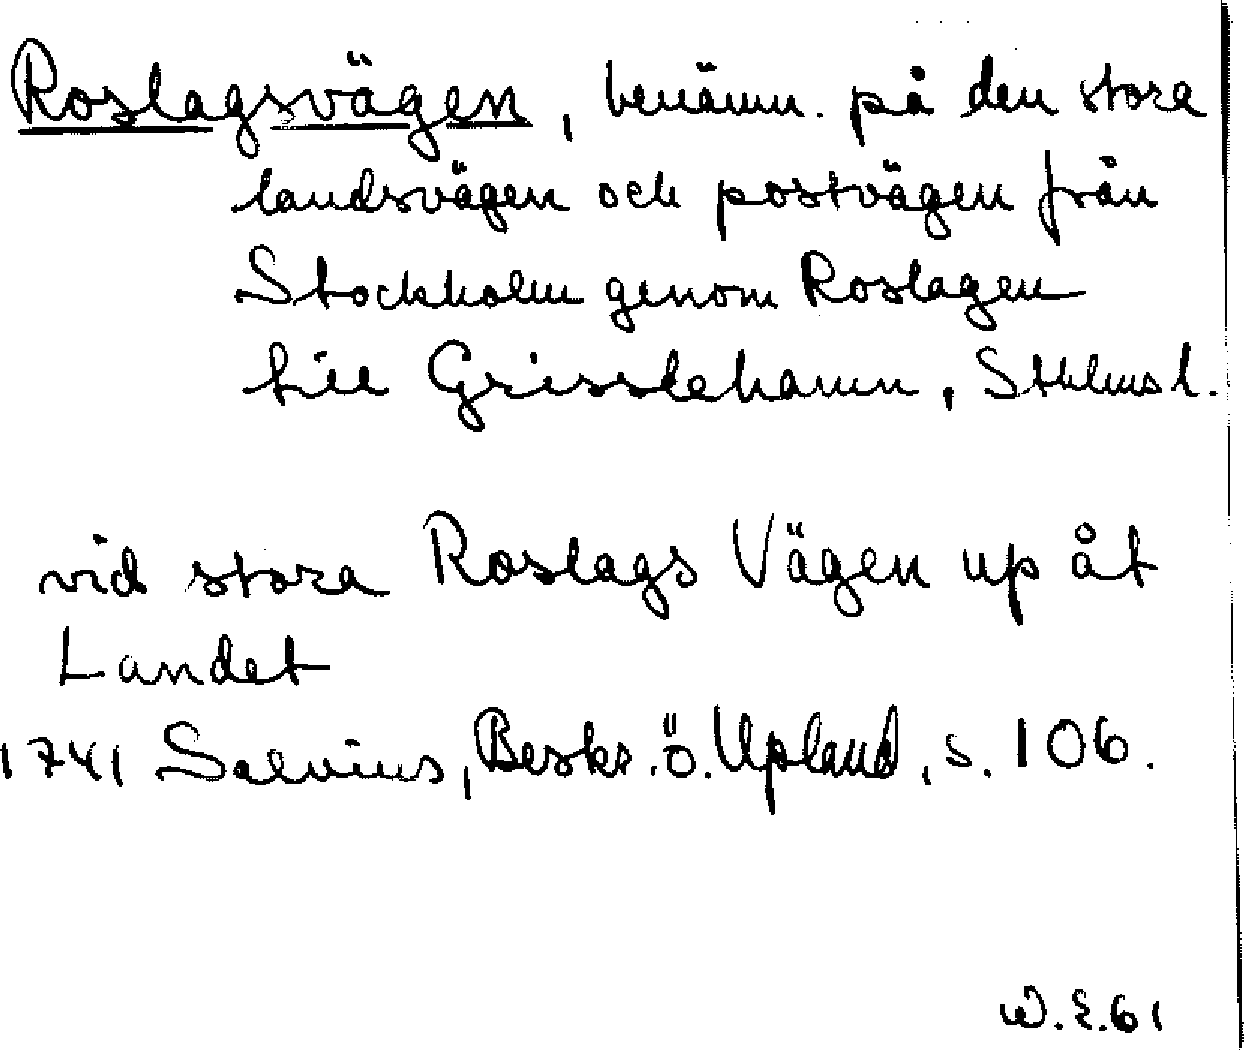 Roslagsvägen, benämn. på den stora
landsvägen och postvägen från
Stockholm genom Roslagen
till Grisslehamn, Sthlms l.
vid stora Roslags Vägen up åt
Landet
1741 Salvius, Beskr. ö. Upland, s. 106.
W.E.61